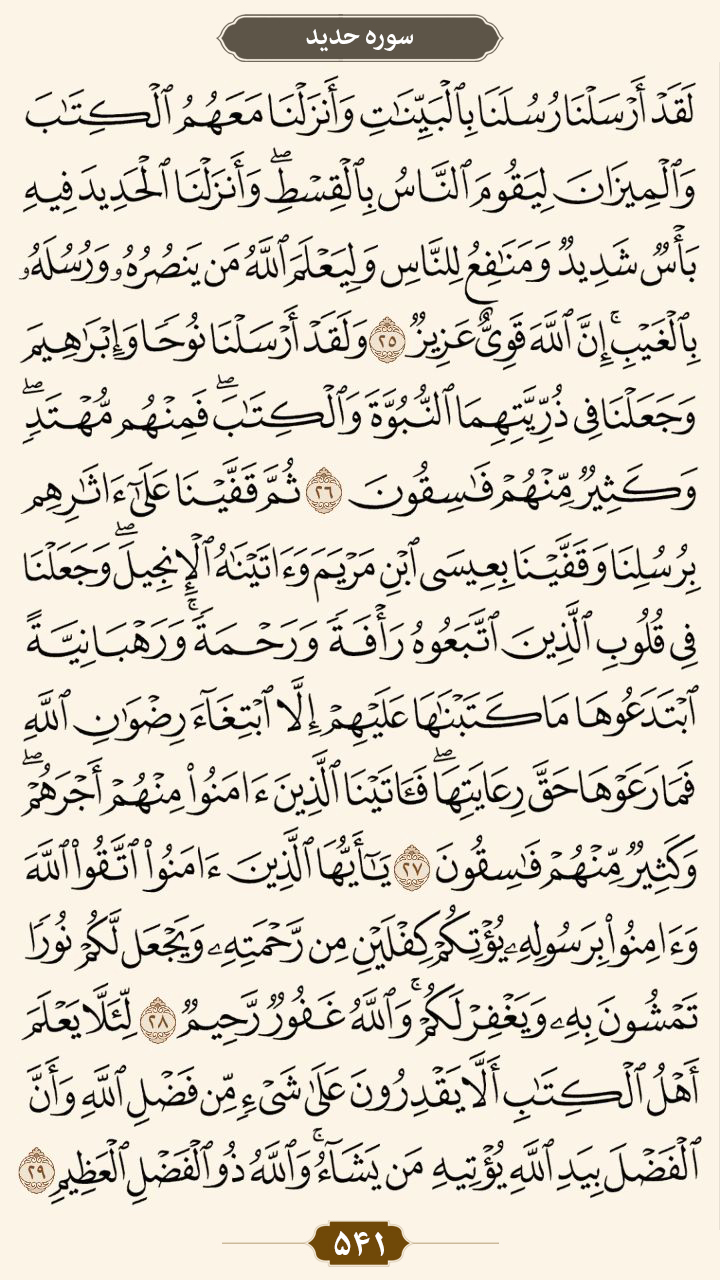 سوره حدید
لَقَدْ أَرْسَلْنَا رُسُلَنَا بِٱلْبَيِّنَٰتِ وَأَنزَلْنَا مَعَهُمُ ٱلْكِتَٰبَ
وَٱلْمِيزَانَ لِيَقُومَ ٱلنَّاسُ بِٱلْقِسْطِۖ وَأَنزَلْنَا ٱلْحَدِيدَ فِيهِ
بَأْسٌ شَدِيدٌ وَمَنَٰفِعُ لِلنَّاسِ وَلِيَعْلَمَ ٱللَّهُ مَن يَنصُرُهُۥ وَرُسُلَهُۥ
بِٱلْغَيْبِۚ إِنَّ ٱللَّهَ قَوِىٌّ عَزِيزٌ ٢٥ وَلَقَدْ أَرْسَلْنَا نُوحًا وَإِبْرَٰهِيمَ
وَجَعَلْنَا فِى ذُرِّيَّتِهِمَا ٱلنُّبُوَّةَ وَٱلْكِتَٰبَۖ فَمِنْهُم مُّهْتَدٍۖ
وَكَثِيرٌ مِّنْهُمْ فَٰسِقُونَ ٢٦ ثُمَّ قَفَّيْنَا عَلَىٰٓ ءَاثَٰرِهِم
بِرُسُلِنَا وَقَفَّيْنَا بِعِيسَى ٱبْنِ مَرْيَمَ وَءَاتَيْنَٰهُ ٱلْإِنجِيلَۖ وَجَعَلْنَا
فِى قُلُوبِ ٱلَّذِينَ ٱتَّبَعُوهُ رَأْفَةً وَرَحْمَةًۚ وَرَهْبَانِيَّةً
ٱبْتَدَعُوهَا مَا كَتَبْنَٰهَا عَلَيْهِمْ إِلَّا ٱبْتِغَآءَ رِضْوَٰنِ ٱللَّهِ
فَمَا رَعَوْهَا حَقَّ رِعَايَتِهَاۖ فَـَٔاتَيْنَا ٱلَّذِينَ ءَامَنُوا۟ مِنْهُمْ أَجْرَهُمْۖ
وَكَثِيرٌ مِّنْهُمْ فَٰسِقُونَ ٢٧ يَٰٓأَيُّهَا ٱلَّذِينَ ءَامَنُوا۟ ٱتَّقُوا۟ ٱللَّهَ
وَءَامِنُوا۟ بِرَسُولِهِۦ يُؤْتِكُمْ كِفْلَيْنِ مِن رَّحْمَتِهِۦ وَيَجْعَل لَّكُمْ نُورًا
تَمْشُونَ بِهِۦ وَيَغْفِرْ لَكُمْۚ وَٱللَّهُ غَفُورٌ رَّحِيمٌ ٢٨ لِّئَلَّا يَعْلَمَ
أَهْلُ ٱلْكِتَٰبِ أَلَّا يَقْدِرُونَ عَلَىٰ شَىْءٍ مِّن فَضْلِ ٱللَّهِ وَأَنَّ
ٱلْفَضْلَ بِيَدِ ٱللَّهِ يُؤْتِيهِ مَن يَشَآءُۚ وَٱللَّهُ ذُو ٱلْفَضْلِ ٱلْعَظِيمِ ٢٩
۵۴۱